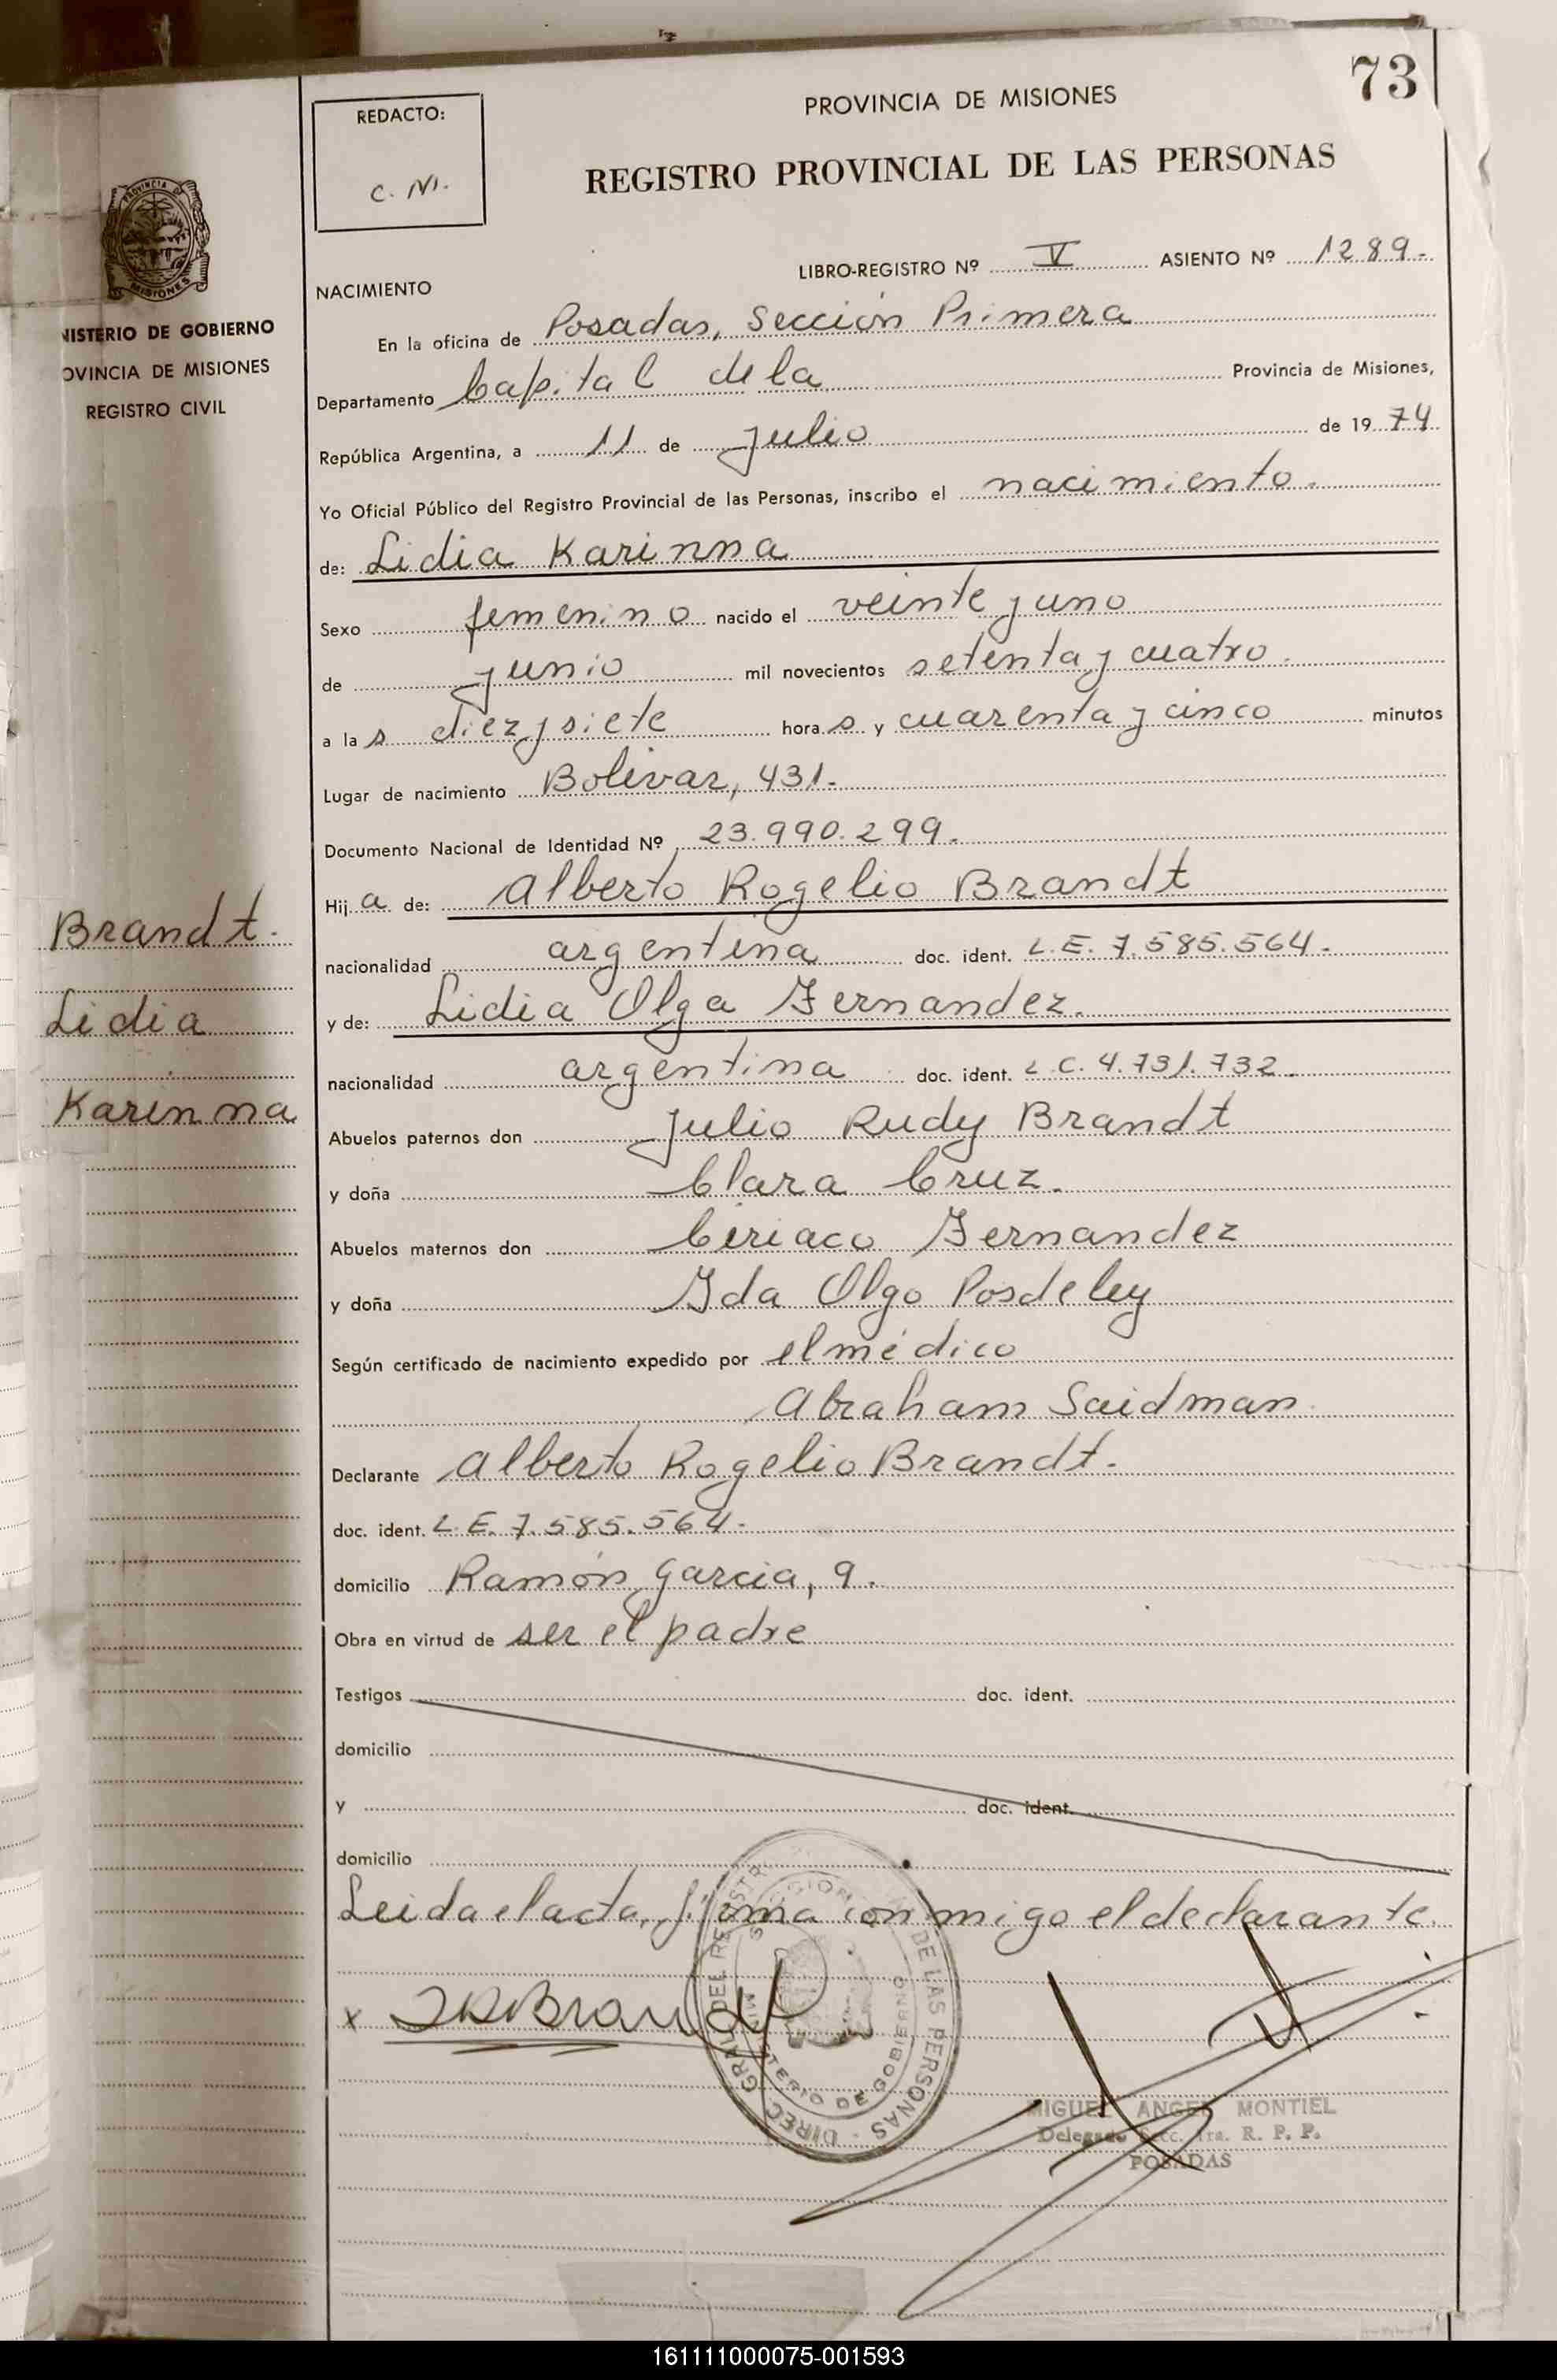 73
PROVINCIA DE MISIONES
REDACTO:
C. M.
REGISTRO PROVINCIAL DE LAS PERSONAS
LIBRO-REGISTRO Nº V ASIENTO Nº 1289.
NACIMIENTO
PROVINCIA DE MISIONES
NISTERIO DE GOBIERNO
OVINCIA DE MISIONES
REGISTRO CIVIL
En la oficina de Posadas, Sección Primera
Departamento Capital de la Provincia de Misiones,
República Argentina, a 11 de Julio de 1974
Yo Oficial Público del Registro Provincial de las Personas, inscribo el nacimiento.
de: Lidia Karinna
Sexo femenino nacido el veinte y uno
de junio mil novecientos setenta y cuatro.
a las diez y siete horas y cuarenta y cinco minutos
Lugar de nacimiento Bolivar, 431.
Documento Nacional de Identidad Nº 23.990.299.
Hija de: Alberto Rogelio Brandt
nacionalidad argentina doc. ident. L.E. 7.585.564.
y de: Lidia Olga Fernandez.
nacionalidad argentina doc. ident. L.C. 4.731.732.
Abuelos paternos don Julio Rudy Brandt
y doña Clara Cruz.
Abuelos maternos don Ciriaco Fernandez
y doña Ida Olgo Posdeley
Según certificado de nacimiento expedido por el médico
Abraham Saidman
Declarante Alberto Rogelio Brandt.
doc. ident. L.E. 7.585.564.
domicilio Ramón Garcia, 9.
Obra en virtud de ser el padre
Testigos doc. ident.
domicilio
y doc. ident.
domicilio
Leida el acta, firma conmigo el declarante.
Brandt.
Lidia
Karinna
x
DIREC. GRAL DEL REGISTRO DE LAS PERSONAS
MINISTERIO DE GOBIERNO
MIGUEL ANGEL MONTIEL
Delegado Secc. 1ra. R. P. P.
POSADAS
161111000075-001593